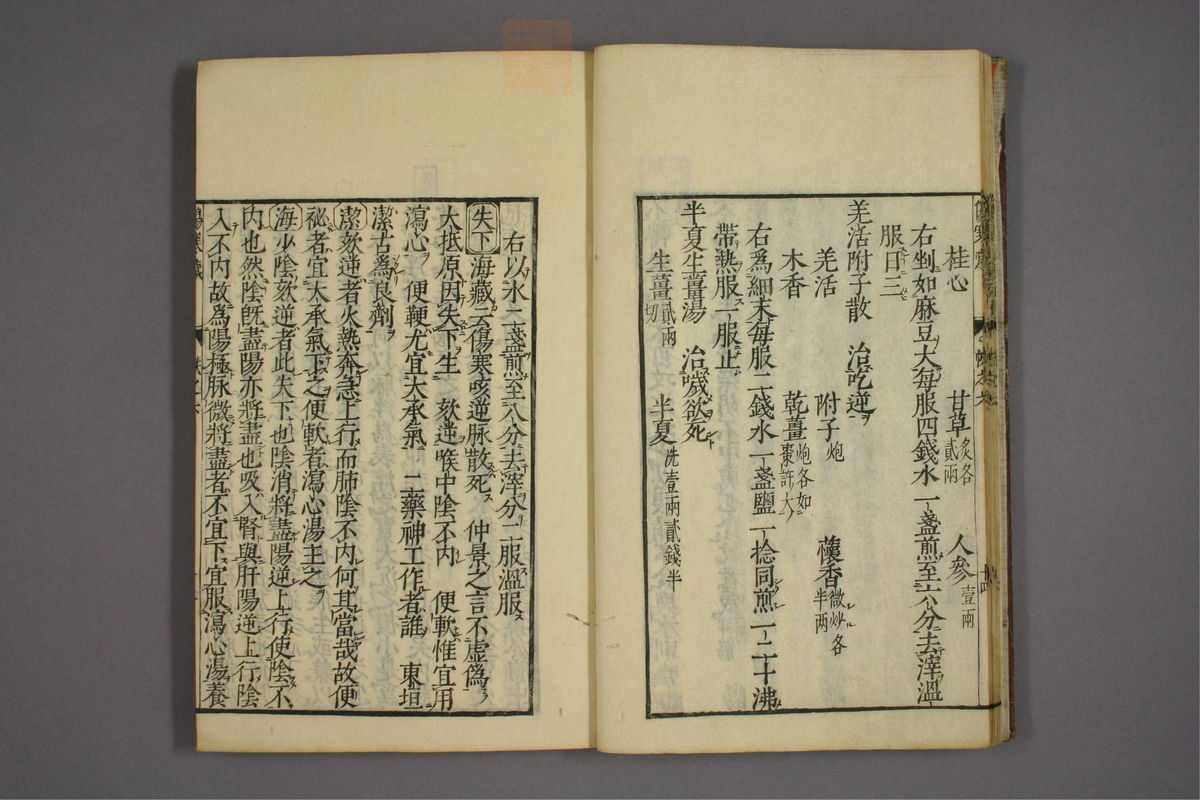 桂心 甘草炙各貳兩 人參壹兩
右剉如麻豆大每服四錢水一盞煎至六分去滓溫
服日三
羌活附子散 治吃逆
羌活 附子炮 蘹香微炒各半兩
木香 乾薑炮各如棗許大
右爲細末每服二錢水一盞鹽一捻同煎一二十沸
帶熱服一服止
半夏生薑湯 治噦欲死
生薑貳兩切 半夏洗壹兩貳錢半
右以水二盞煎至八分去滓分二服溫服
失下 海藏云傷寒咳逆脉散死 仲景之言不虛僞
大抵原因失下生 欬逆喉中陰不內 便軟惟宜用
瀉心 便鞕尤宜大承氣 二藥神工作者誰 東垣
潔古爲良劑
潔 欬逆者火熱奔急上行而肺陰不內何其當哉故便
祕者宜大承氣下之便軟者瀉心湯主之
海 少陰欬逆者此失下也陰消將盡陽逆上行使陰不
內也然陰旣盡陽亦將盡也吸入腎與肝陽逆上行陰
入不內故爲陽極脉微將盡者不宜下宜服瀉心湯養